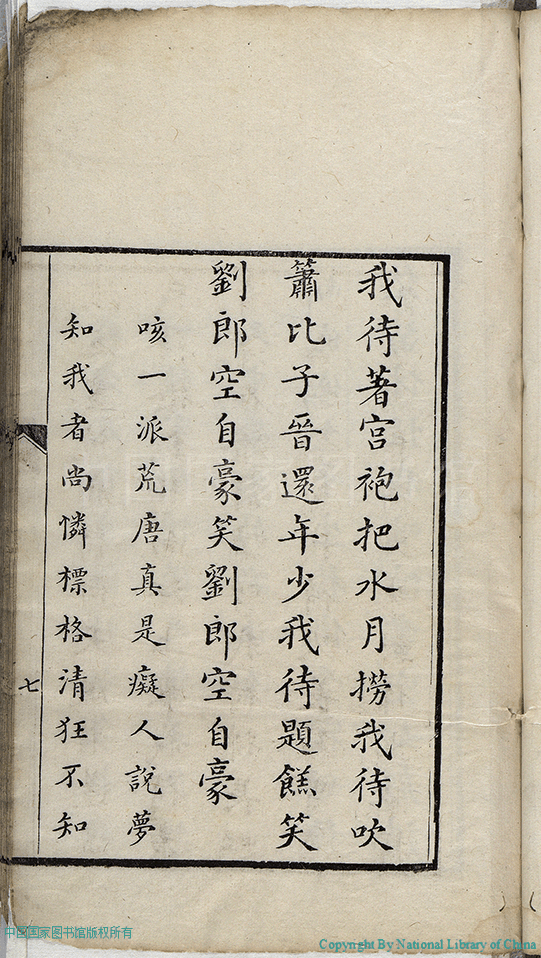 我待著宮袍把水月撈我待吹
簫比子晉還年少我待題餻笑
劉郎空自豪笑劉郎空自豪
咳一派荒唐真是癡人說夢
知我者尚憐標格清狂不知
七
中国国家图书馆版权所有
Copyright By National Library of China